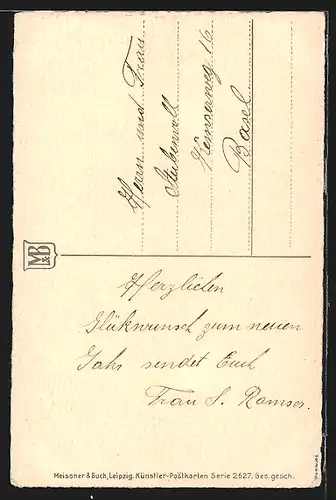 Herrn und Frau
Stubenvoll
Hemserweg 16
Basel
M&B
Herzlichen
Glükwunsch zum neuen
Jahr sendet Euch
Frau S. Ramser.
Meissner & Buch, Leipzig. Künstler-Postkarten Serie 2627. Ges. gesch.